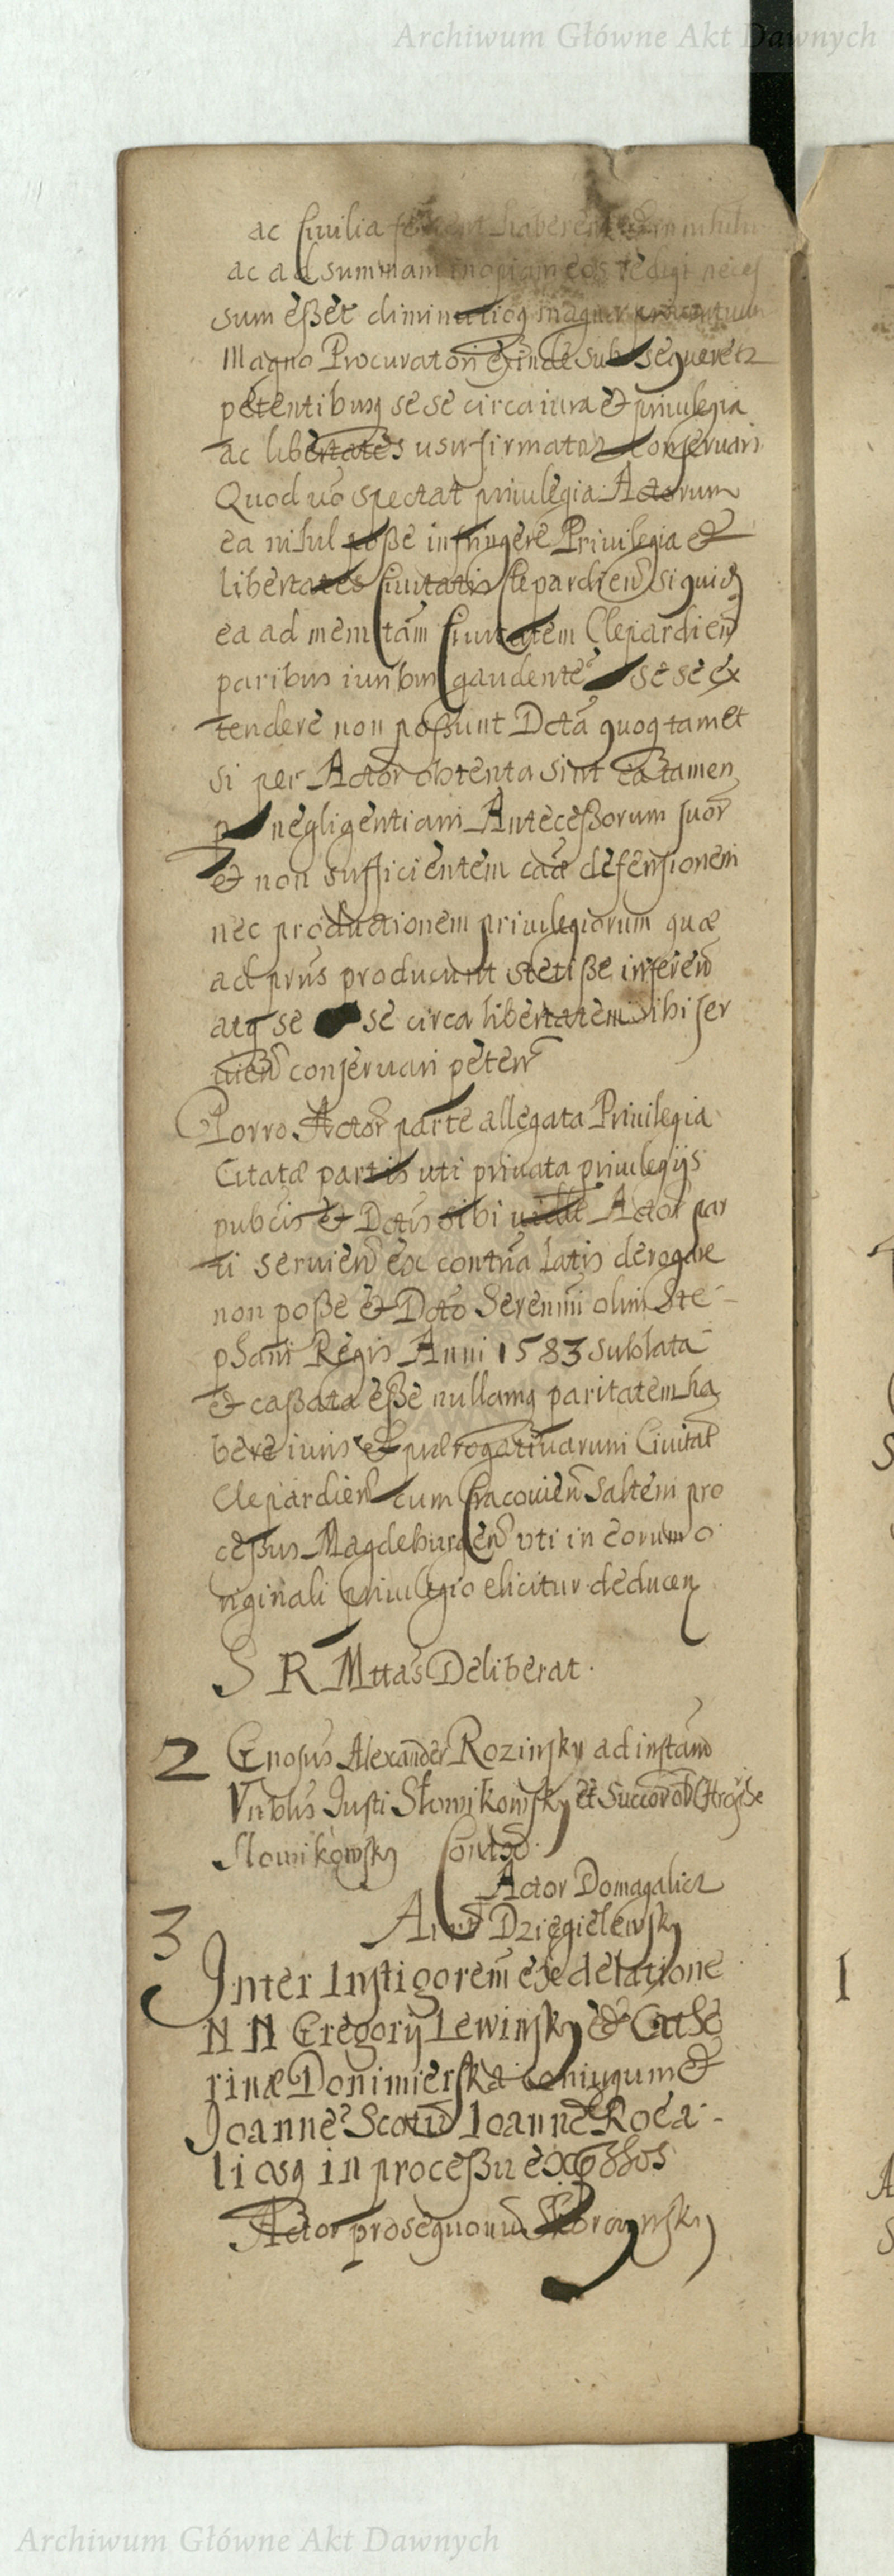 Archiwum Główne Akt Dawnych
ac Ciuilia haberent
ac ad summam inopiam eos redigi neces
sum eßet diminutioq
Magno Procuratori exinde subsequeretz
petentibusq sese circa iura et priuilegia
ac libertates usu firmatas conseruari
Quod uo spectat priuilegia Actorum
ea nihil poße infringere Priuilegia et
libertates Ciuitatis Clepardien siquid
ea ad mem tam Ciuitatem Clepardien
paribus iuribus gaudente sese ex
tendere non poßunt Dcta quoq tamet
si per Actor obtenta sint ea tamen
p negligentiam Anteceßorum suor
et non sufficientem cae defensionem
nec productionem priuilegiorum quæ
ad prns producunt stetiße inferen
atq se se circa libertatem sibi ser
uien conseruari peten
Porro Actor parte allegata Priuilegia
Citatæ partis uti priuata priuilegijs
pubcis et Dctis sibi Actor par
ti seruien ex contria latis derogare
non poße et Dcto Serenmi olim Ste-
phani Regis Anni 1583 sublata
et caßata eße nullamq paritatem ha
bere iuris et prærogatiuarum Ciuitat
Clepardien cum Cracouien saltem pro
ceßus Magdeburgen uti in eorum o
riginali priuilegio elicitur deducen
S R Mttas Deliberat.
2 Gnosus Alexander Rozinsky ad instan
Justi Słowikowsky et
Slowikowsky Contra
Actor Domagalicz
Dziegielewsky
3
Inter Instigorem et de latione
N N Gregorij Lewinsky et Cathe
rinæ Donimierska coniugum et
Joanne Scotu Joanne Roea-
liosq in proceßu
Actor prosequonis
I
Archiwum Główne Akt Dawnych